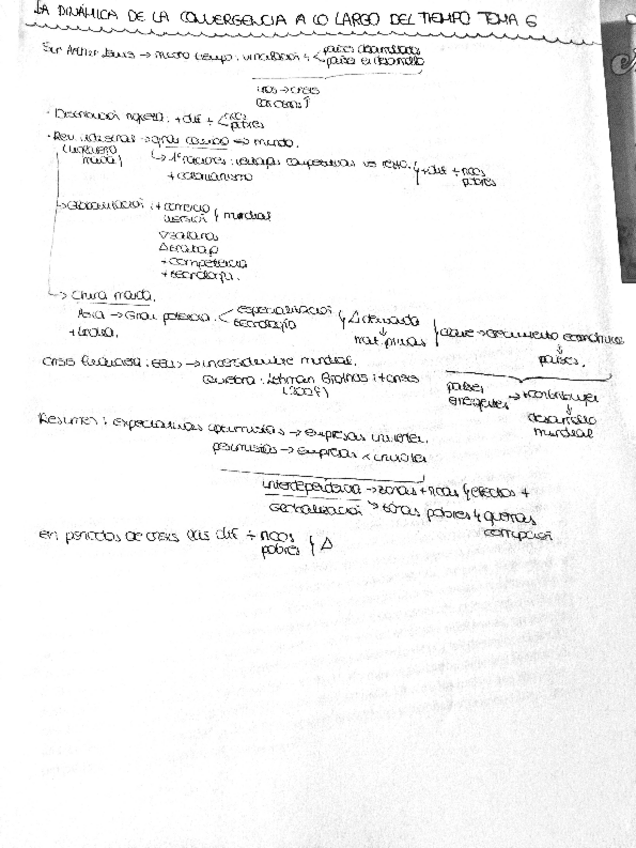 LA DINÁMICA DE LA CONVERGENCIA A LO LARGO DEL TIEMPO TEMA 6
Sir Arther Lewis → mucho tiempo: vinculación { países desarrollados
países en desarrollo
crisis
· Distribución ingreso: + dif ÷ < ricos
pobres
· Rev. industrial → gran cambio → mundo.
↳ 1º naciones: ventajas competitivas vs resto. } + dif ÷ ricos
pobres
+ colonialismo
↳ Globalización: + comercio
inversión } mundial
∇ salarios
+ competencia
+ tecnología.
↳ China
Asia → Gran potencia. < especialización
tecnología } Δ demanda
↓
mat. primas
crecimiento económico
↓
países.
+ India.
Crisis financiera: EEUU → mundial.
Quiebra: Lehman Brothers: + crisis
(2008)
países
emergentes → + contribuyen
↓
desarrollo
mundial
Resumen: expectativas optimistas → empresas invierten.
pesimistas → empresas x invierten
interdependencia → zonas + ricas } efectos +
Globalización ↘ zonas pobres
en periodos de crisis las dif ÷ ricos
pobres } Δ